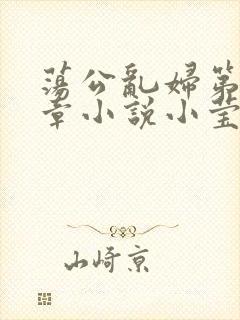 蕩公亂婦第
章小説小瑩
山崎京